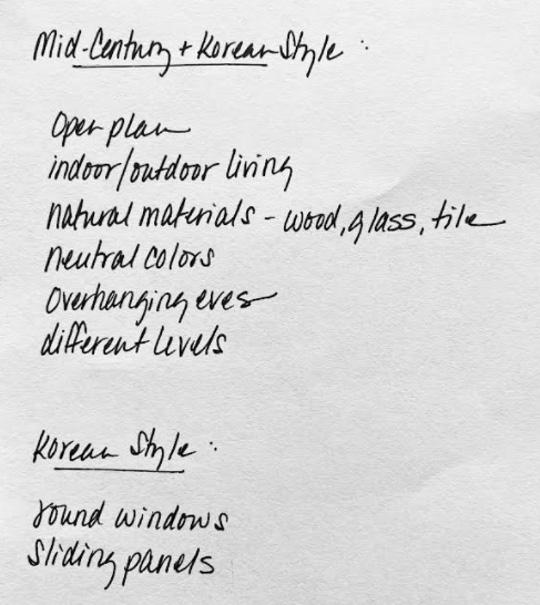 Mid-Century + Korean Style :
Open plan
indoor/outdoor living
natural materials - wood, glass, tile
neutral colors
Overhanging eves
different levels
Korean Style :
round windows
sliding panels